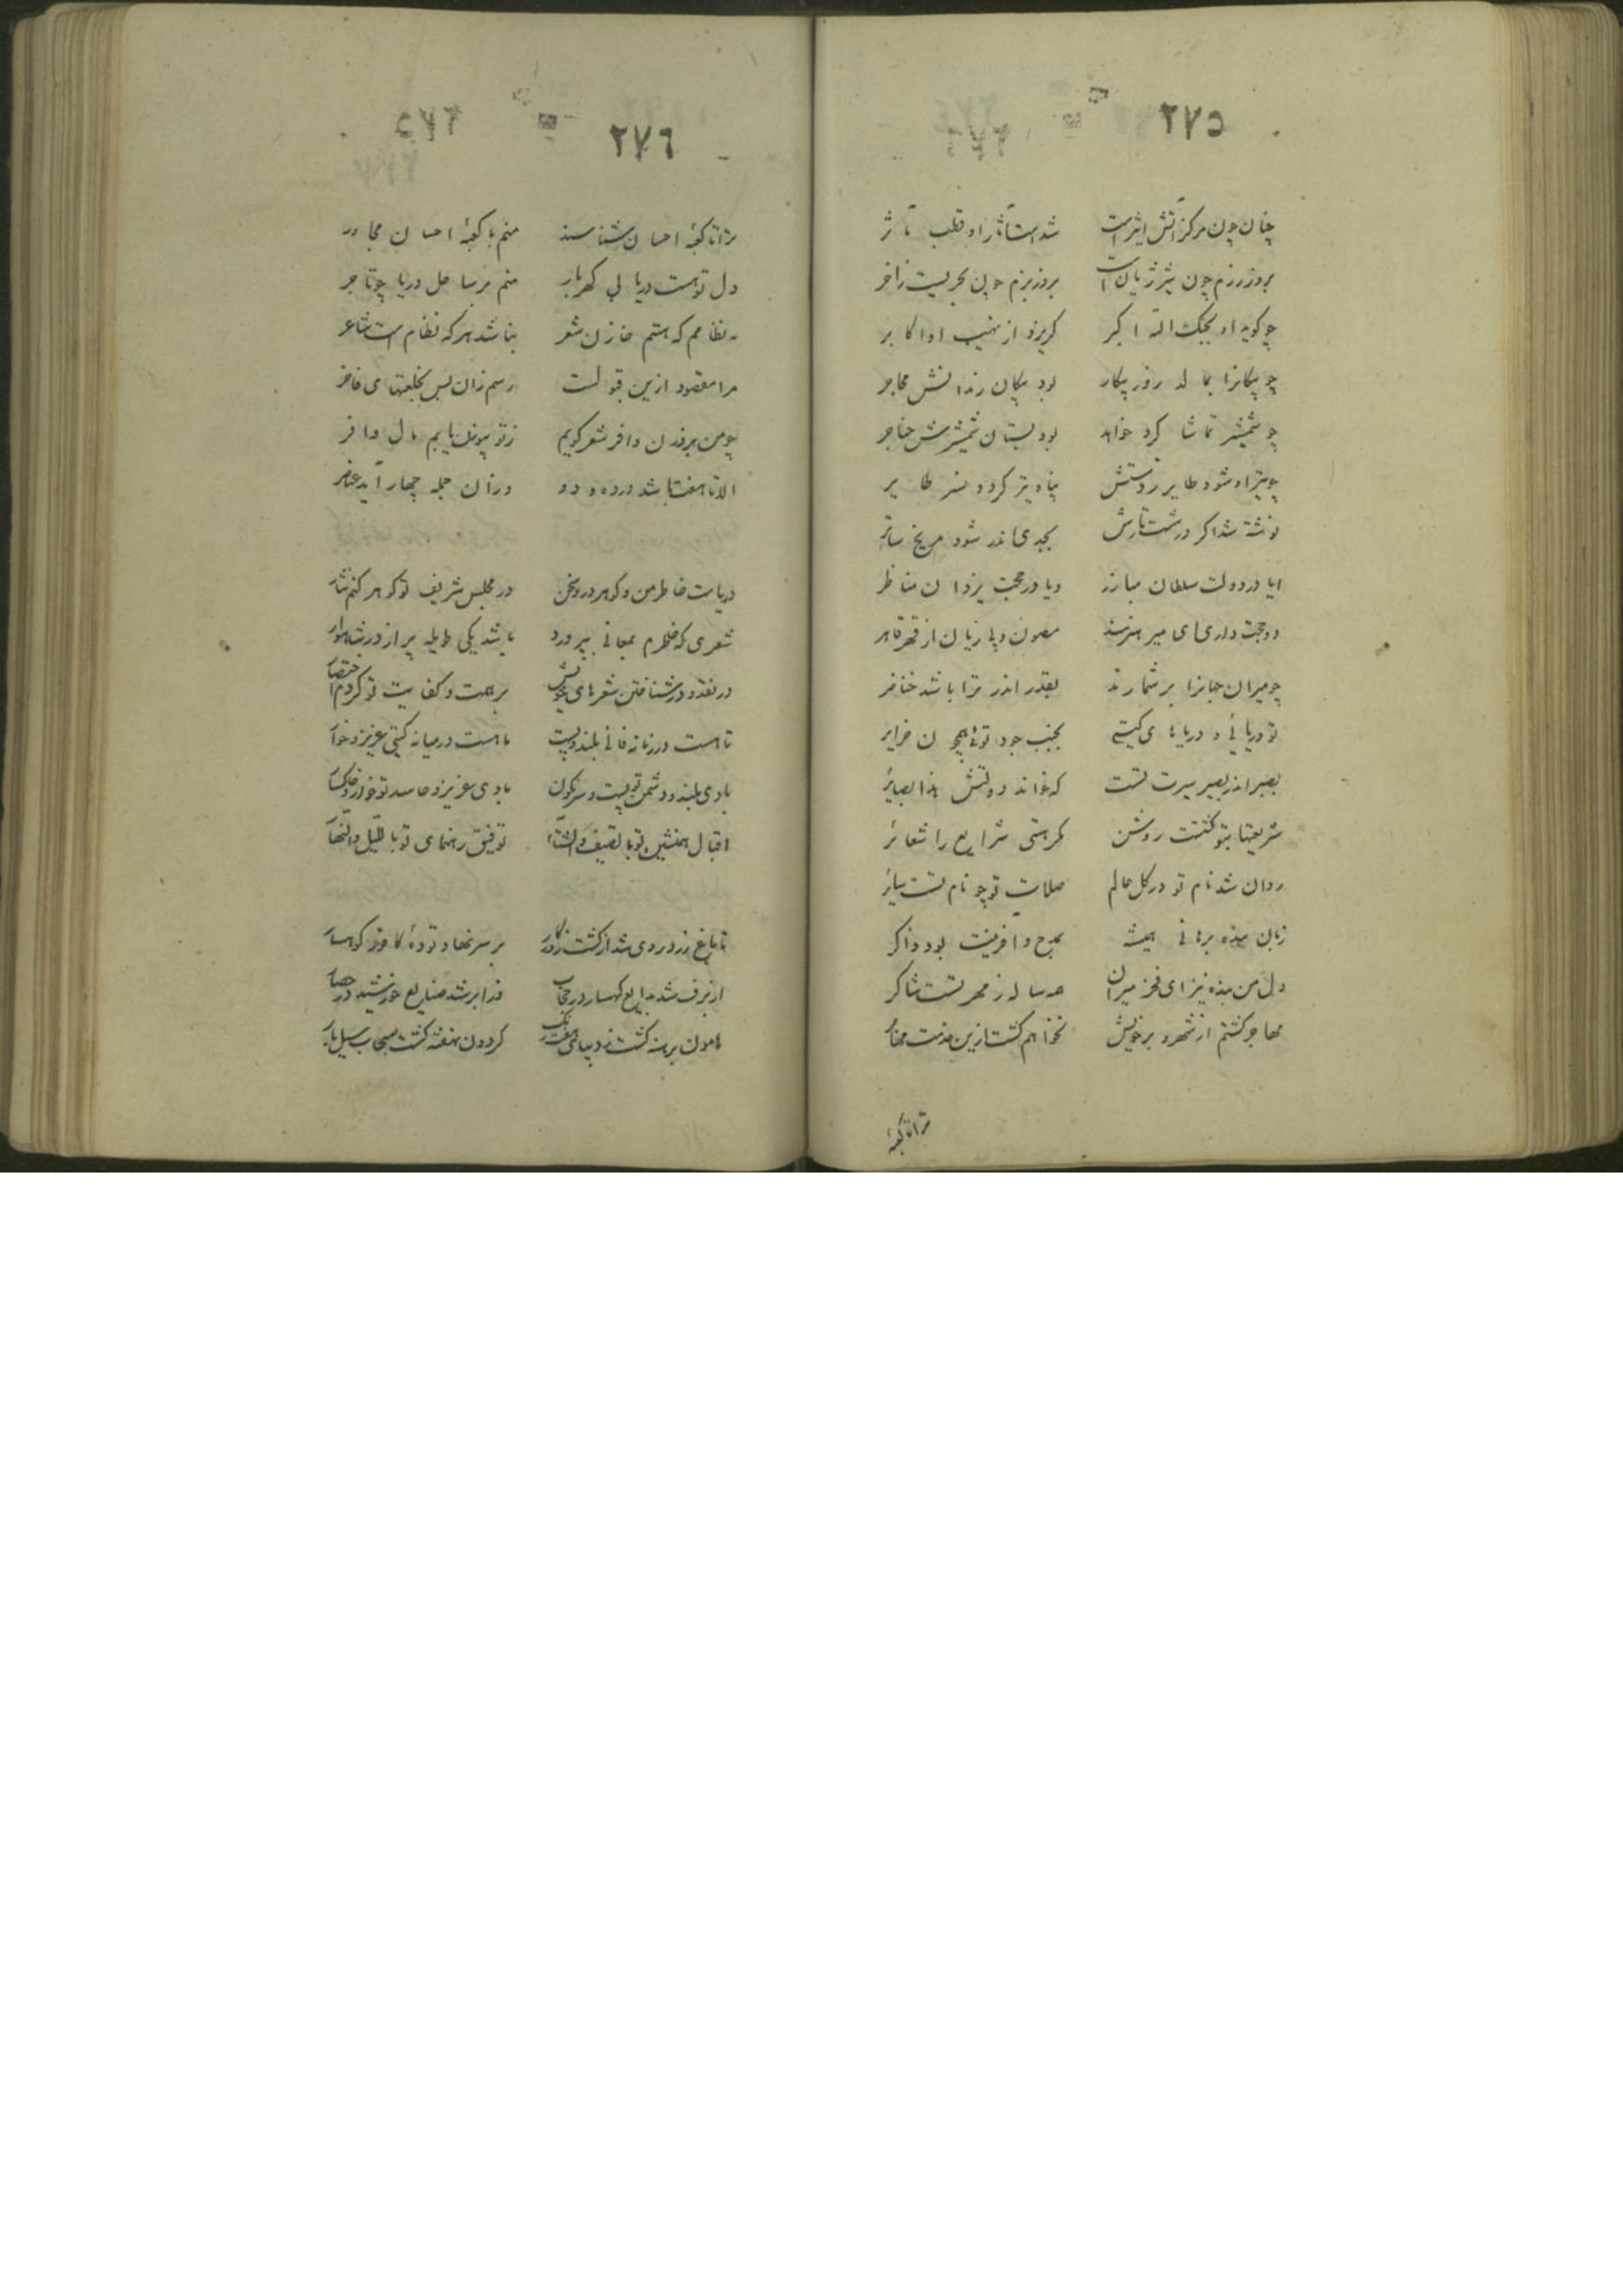 ٢٧٥
چنان چون مرکز آتش اثیر است شد است آثار او قطب مآثر
بروز رزم چون شیر ژیان است بروز بزم چون بحریست زاخر
چو گوید او بجنگ الله اکبر گریزد از نهیب او اکابر
چو پیکانرا بمالد روز پیکار بود پیکان زندانش محاجر
چو شمشیر تماشا کرد خواهد بود بستان شمشیرش حناجر
چو تیر او شود طایر ز دستش پناه تیر گردد نسر طایر
نوشته شد اگر در شست تیرش بجدی اندر شود مریخ ساتر
ایا در دولت سلطان مبارز ویا در محبت یزدان مناظر
دو حجت داری ای میر هنرمند مصون و بی زیان از قهر قاهر
چو میران جهانرا بر شمارند بقدر اندر ترا باشد خناصر
تو دریائی و دریاهای گیتی بجنب جود تو همچون جزایر
بصیر اندر بصیر سیرت تست که خواند دولتش هذا بصایر
شریعتها بتو گشتست روشن مگر هستی شرایع را شعائر
روان شد نام تو در کل عالم صلات تو چو نام تست سایر
زبان بنده برهانی همیشه بمدح و آفرینت بود ذاکر
دل من بنده نیز ای فخر میران همه ساله ز مهر تست شاکر
مهاجر گشتم از شهر و بر خویش نخواهم گشت ازین خدمت مهاجر
ترا تا کعبهٔ
٢٧٦
ترا تا کعبهٔ احسان شناسند منم با کعبهٔ احسان مجاور
دل تو هست دریای گهربار منم بر ساحل دریا چو تاجر
نه نظامم که هستم خازن شعر نباشد هر که نظام است شاعر
مرا مقصود ازین قبولست رسم زان پس بخلعتهای فاخر
چو من بر وزن وافر شعر گویم ز تو بیوزن یابم مال وافر
الا تا هفت باشد در ده و دو وزان جمله چهار آید عناصر
دریاست خاطر من و گوهر درو سخن در مجلس شریف تو گوهر کنم نثار
شعری که خاطرم بمعانی بپرورد باشد یکی طویله پر از در شاهوار
در نقد و در شناختن شعرهای خویش بر همت و کفایت تو کردم اختصار
تا هست در زمانه فانی بلند و پست تا هست در میانه گیتی عزیز و خوار
بادی بلند و دشمن تو پست و سرنگون بادی عزیز و حاسد تو خوار و خاکسار
اقبال همنشین تو بالصیف والشتا توفیق رهنمای تو باللیل والنهار
تا باغ زرد روی شد از گشت روزگار بر سر نهاد تودهٔ کافور کوهسار
از برف شد بدایع کهسار در حجاب وز ابر شد صنایع خورشید در حصار
هامون برهنه گشت ز دیبای هفت رنگ گردون نهفته گشت سحاب سیل بار